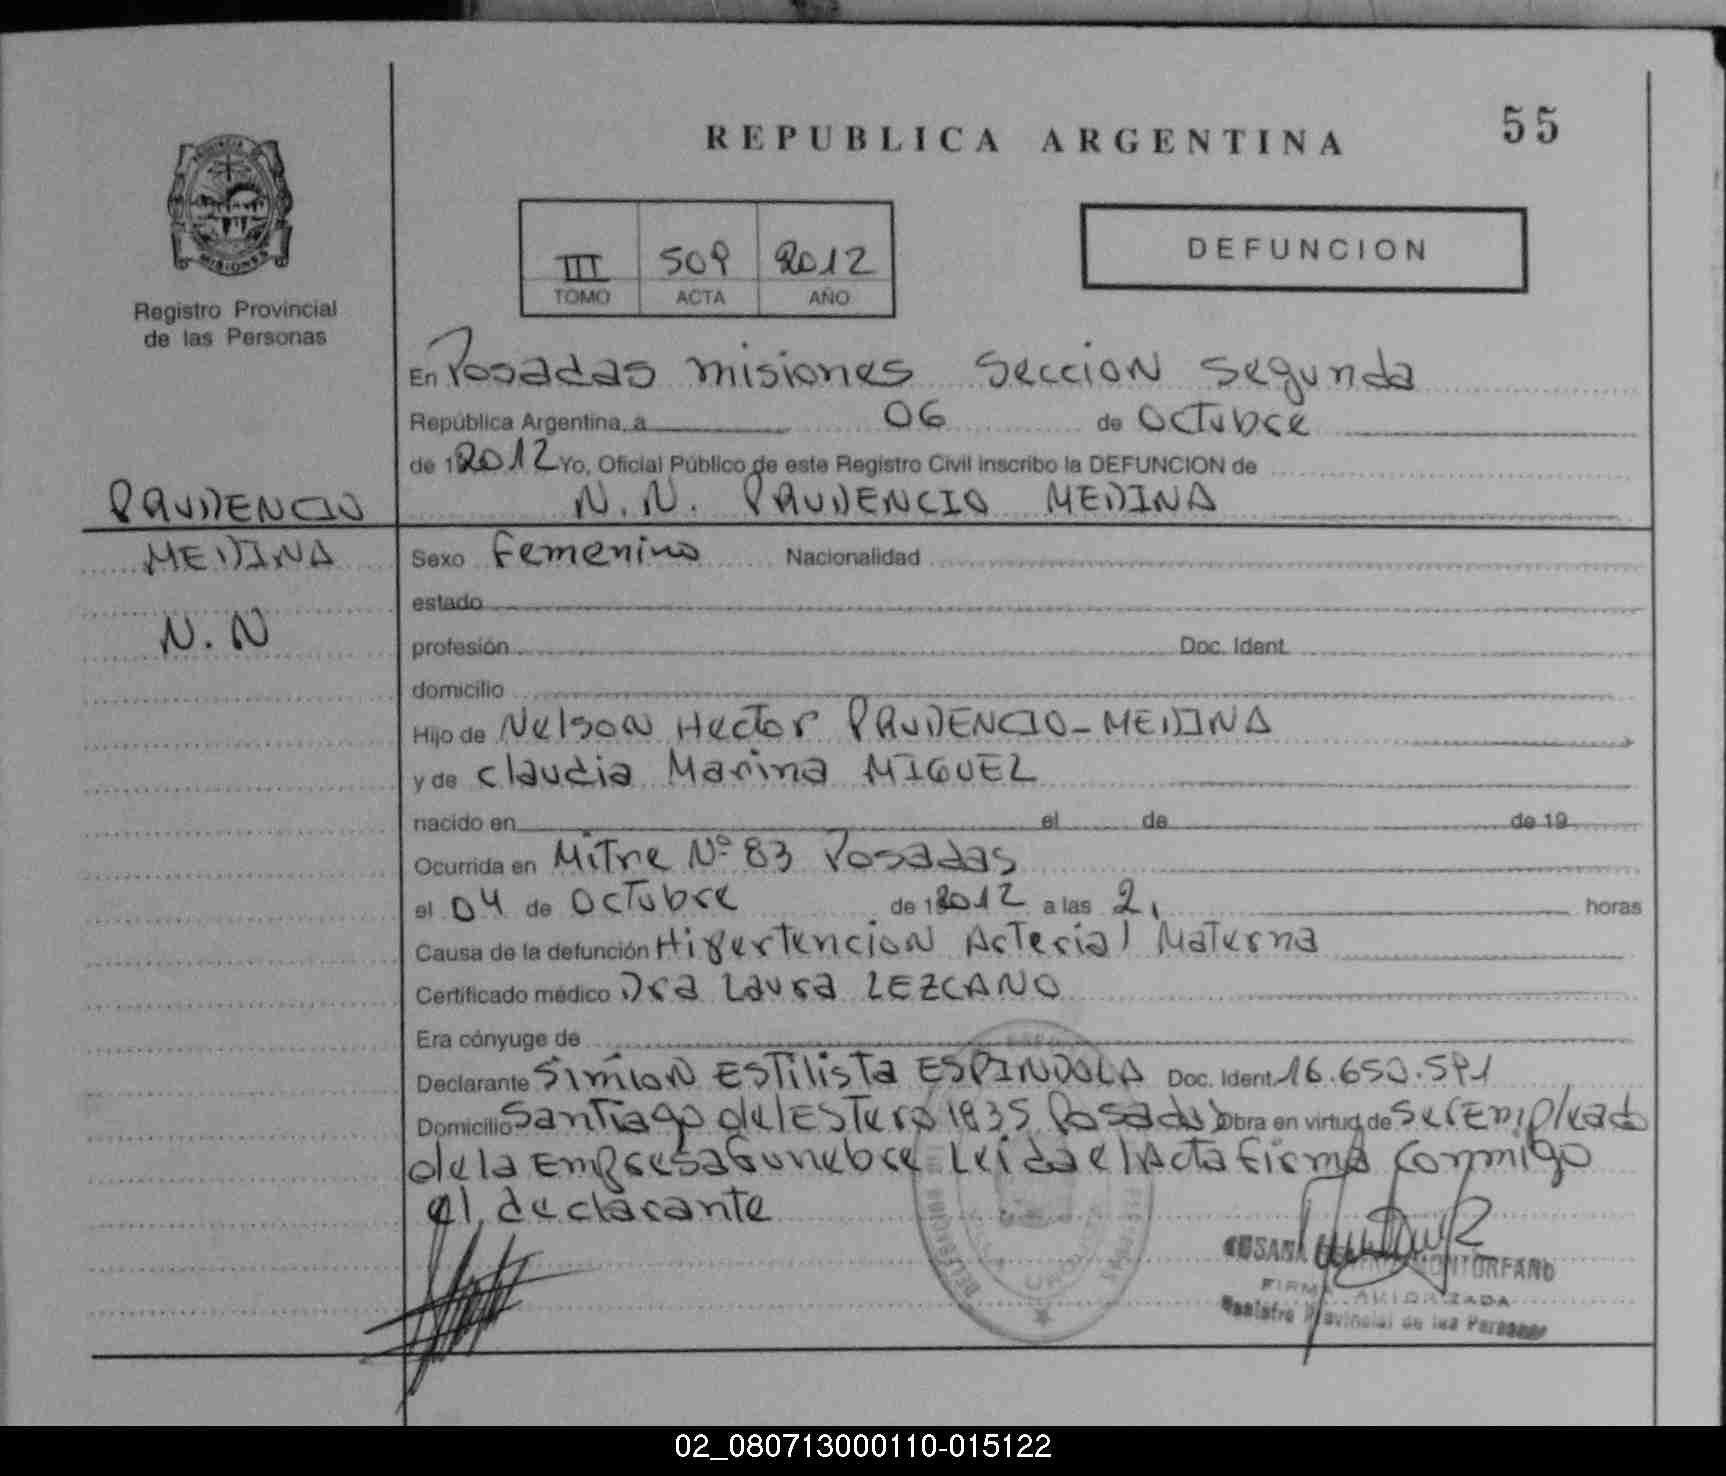 REPUBLICA ARGENTINA
55
DEFUNCION
III 509 2012
TOMO ACTA AÑO
PROVINCIA
MISIONES
Registro Provincial
de las Personas
En Posadas misiones seccion segunda
República Argentina, a 06 de Octubre
de 1 2012 Yo, Oficial Público de este Registro Civil inscribo la DEFUNCION de
N.N. PRUDENCIO MEDINA
PRUDENCIO
MEDINA
N.N
Sexo Femenino Nacionalidad
estado
profesión Doc. Ident.
domicilio
Hijo de Nelson Hector PRUDENCIO-MEDINA
y de Claudia Marina MIGUEL
nacido en el de de 19
Ocurrida en Mitre Nº 83 Posadas
el 04 de Octubre de 1 2012 a las 2, horas
Causa de la defunción Hipertencion Arterial Materna
Certificado médico Dra Laura LEZCANO
Era cónyuge de
Declarante Simion Estilista ESPINDOLA Doc. Ident. 16.650.591
Domicilio Santiago del Estero 1835 Posadas Obra en virtud de ser Empleado
de la Empresa funebre Leida el Acta firma conmigo
el declarante
MONTORFANO
FIRMA AUTORIZADA
Registro Provincial de las Personas
02_080713000110-015122